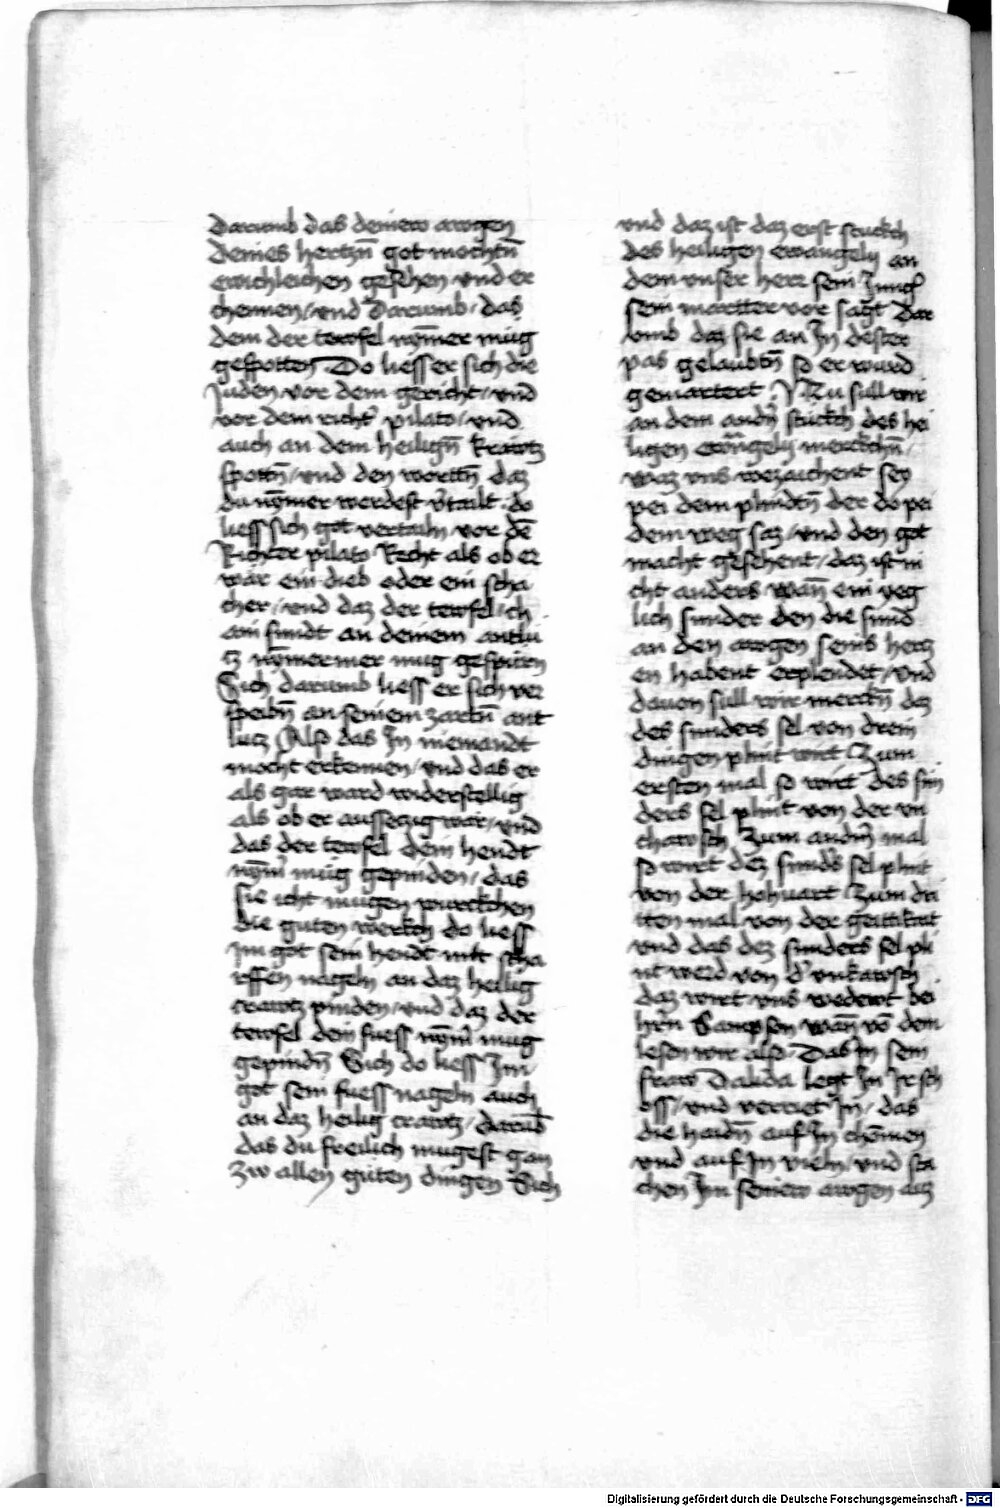 Darumb das deinew awgen
Deines hertzn̄ got mochtn̄
ewichleichen gesehen vnd er
chennen / vnd Darumb / das
dem der tewfel nȳmer mŭg
gespotten Do liess er sich die
Juden vor dem gericht / vnd
vor dem richt' pilato / vnd
auch an dem heilign̄ krawtz
spottn̄ / vnd den wortt̄n daz
du nȳmer werdest v'tailt do
liess sich got vertailn vor dē
Richter pilato Recht als ob er
wär ein dieb oder ein scha
cher / vnd daz der tewfel / ch
ain sundt an deinem antlu
tz nȳmermer mug gespürn
Sich darumb liess er sich ver
speibn̄ an seinem zartn̄ ant
lutz Also das In niemandt
mocht erkennen / vnd das er
als gar ward widerstellig
als ob er aussetzig wär / vnd
das der tewfel dein hendt
nȳm' müg gepinden / das
sie icht mügen wurckchen
die guten werkch do liess
im got sein hendt mit scha
rffen nageln an daz heilig
crawtz pinden / vnd daz der
tewfel dein fuess nȳm' mug
gepindn̄ Sich do liess Im
got sein fuess nageln auch
an daz heilig crawtz / darūb
das du freilich mugest gan
zw allen guten dingen Sich
vnd daz ist daz erst stuckch
des heiligen ewangelij an
dem vnser herr sein Jung'
sein martter vor sagt Dar
vmb daz sie an In dester
pas gelaubtn̄ so er wurd
gemartert / Nu sull wir
an dem andn̄ stuckch des hei
ligen ewāngelij merckchn̄ /
waz vns wezaichent sey
pei dem plindtn̄ der do pei
dem weg saz / vnd den got
macht gesehent / daz ist ni
cht anders wan̄ ein yeg
lich sunder den die sund
an den awgen seins hertz
en habent erplendet / vnd
dauon sull wir merckn̄ daz
des sunders sel von drein
dingen plint wirt Zum
ersten mal so wirt des sün
ders sel plint von der vn
chawsch Zum andm̄ mal
so wirt dez sund's sel plint
von der hohuart Zum dri
tten mal von der geittikait
vnd das dez sunders sel pli
nt werd von d' vnkawsch
daz wirt vns wedewt bei
hrn̄ Sampson wan̄ vō dem
lesen wir also / Das in sein
fraw Dalida legt In Ir sch
oss / vnd verriet In / das
die haidn̄ auf In chōmen
vnd auf In vieln / vnd sta
chen Im seinew awgen auz
Digitalisierung gefördert durch die Deutsche Forschungsgemeinschaft - DFG